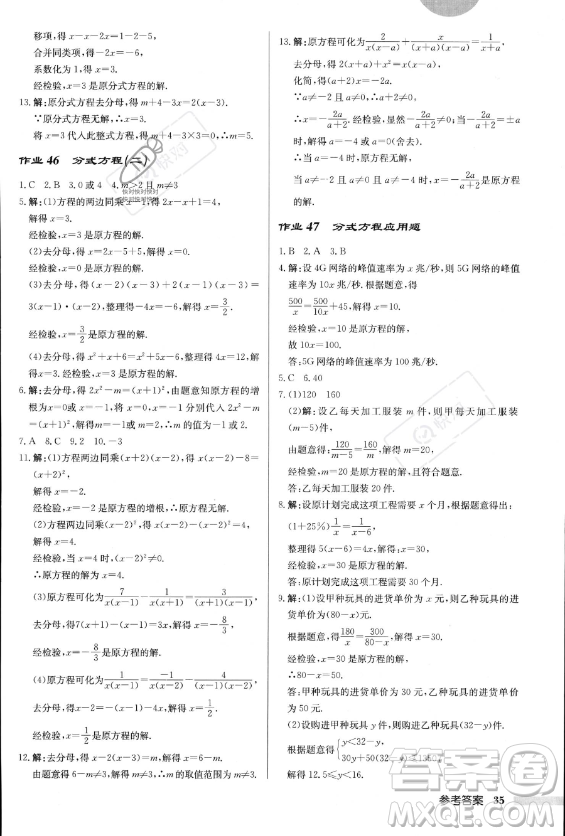 移项,得x-x-2x=-5-1.
合并同类项,得-2x=-6,
系数化为1,得x=3.
经检验,x=3是原分式方程的解.
13.解:原分式方程去分母,得m+4-3x=2(x-3).
∵原分式方程无解,∴x=3.
将x=3代入此整式方程,得m+4-3×3=0,∴m=5.
作业46 分式方程(二)
1.C 2.B 3.0或4 4.m>2且m≠3
5.解:(1)方程的两边同乘x-1,得2=x-1.
解得x=3.
经检验,x=3是原方程的解.
(2)去分母,得x=2x-5+5,解得x=0.
经检验,x=0是原方程的解.
(3)去分母,得(x-2)(x-3)+2(x-1)(x-3)=
3(x-1)·(x-2),整理得-4x=-6,解得x=3/2.
经检验,x=3/2是原方程的解.
(4)去分母,得x²+x+6=x²+5x-6,解得x=3.
经检验,x=3是原方程的解.
6.解:去分母,得2x²-m=(x+1)²,由题意知原方程的增
根x=0或x=-1,将x=0或x=-1分别代入2x²
-m=(x+1)²,得m=-1或2.
7.A 8.C 9.2 10.-3
11.解:(1)方程两边同乘(x+2)(x-2),得x(x-2)-8=
(x+2)²,
解得x=-2.
经检验,x=-2是原方程的增根,∴原方程无解.
(2)方程两边同乘(x-2)²,得x(x-2)-(x-2)²=4,
解得x=4.
经检验,当x=4时,(x-2)²≠0.
∴原方程的解为x=4.
(3)原方程可化为7/x(x-1)-1/x(x-1)=3/(x+1)(x-1).
去分母,得7(x+1)-(x-1)=3x,解得x=-8/3.
经检验,x=-8/3是原方程的解.
(4)原方程可化为1/x(x-1)=-1/x-1-4/x(x-1).
去分母,得1=-x-4(x-1),解得x=1/2.
经检验,x=1/2是原方程的解.
12.解:去分母,得x-2(x-3)=m,解得x=6-m.
由题意得6-m≠3,∴m≠3,即m的取值范围为m≠3.
13.解:原方程可化为2/x(x-a)+x/(x+a)(x-a)=1/x+a.
去分母,得2(x+a)+x²=x(x-a).
化简,得(a+2)x=-2a.
当a≠-2时,x=-2a/a+2.
经检验,显然-2a/a+2≠0,且当-2a/a+2=-a或-2a/a+2=a
时,解得a=-4或a=0(舍去).
∴当a=-2或a=-4时,原方程无解;
当a≠-2且a≠-4时,x=-2a/a+2是原方程的解.
作业47 分式方程应用题
1.B 2.A 3.B
4.解:设4G网络的峰值速率为x兆/秒,则5G网络的峰
值速率为10x兆/秒.根据题意,得
500/x=500/10x+45,解得x=10.
经检验,x=10是原方程的解.
故10x=100.
答:5G网络的峰值速率为100兆/秒.
5.C 6.40
7.(1)120 160
(2)解:设乙每天加工服装m件,则甲每天加工服装
(m-5)件,
由题意得:120/m-5=160/m,解得m=20.
经检验,m=20是原方程的解,且符合题意.
答:乙每天加工服装20件.
8.解:设原计划完成这项工程需要x个月,根据题意得出:
(1+25%)1/x=1/x-6.
整理得5(x-6)=4x,解得x=30.
经检验,x=30是原方程的解.
答:原计划完成这项工程需要30个月.
9.解:(1)设甲种玩具的进货单价为x元,则乙种玩具的进
货单价为(80-x)元.
根据题意,得180/x=300/80-x,解得x=30.
经检验,x=30是原方程的解.
∴80-x=50.
答:甲种玩具的进货单价为30元,乙种玩具的进货单价
为50元.
(2)设购进甲种玩具y件,则购进乙种玩具(32-y)件,
根据题意,得{y<32-y,
30y+50(32-y)≤1350,
解得12.5≤y<16.
参考答案 35